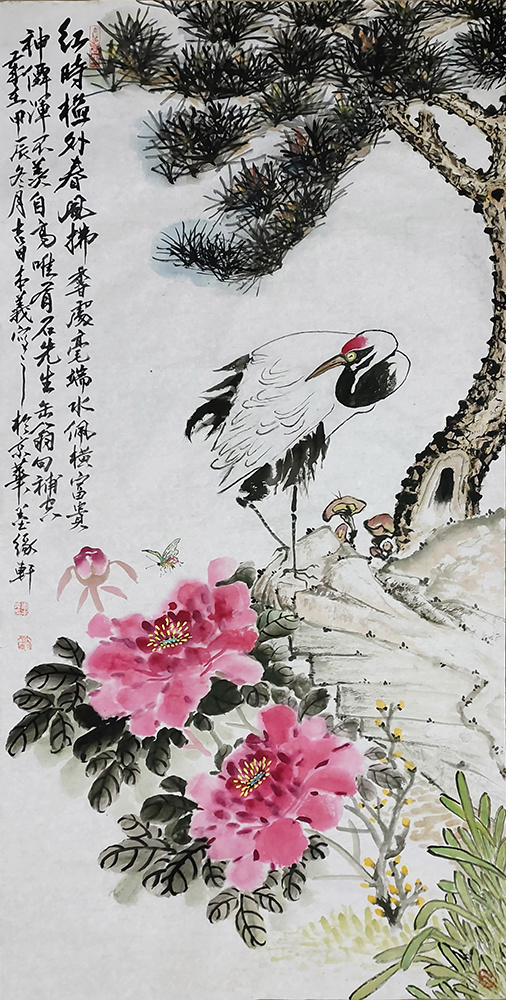 红時槛外春風拂香處毫端水佩横富貴
神僊渾不羡自高唯有石先生缶翁句補空
歲在甲辰冬月吉日義寫之於京華墨緣軒